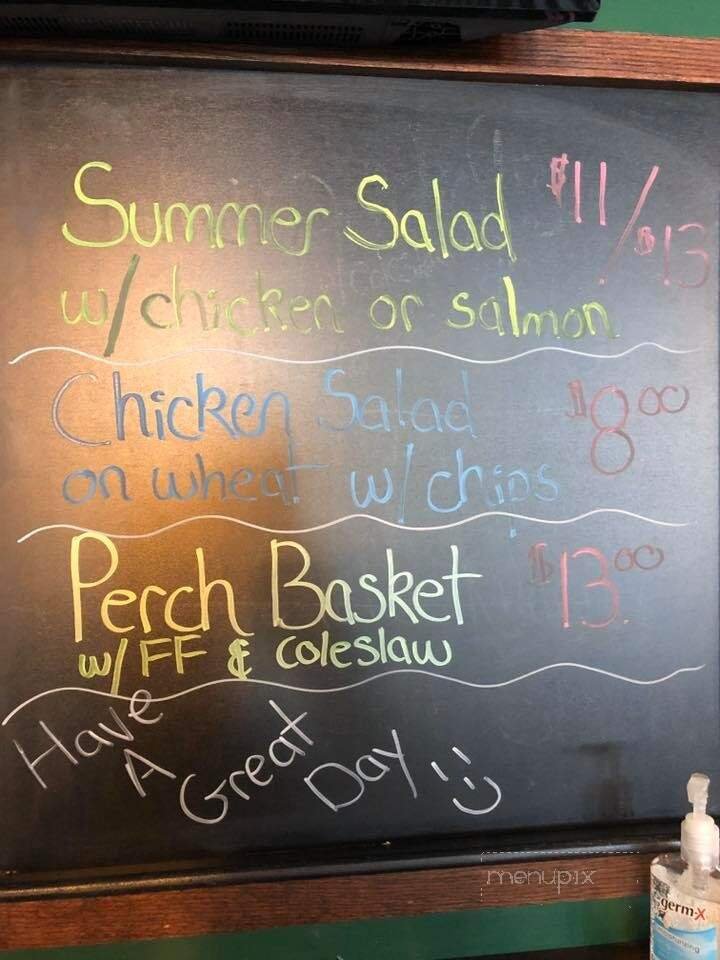 Summer Salad $11/$13
w/chicken or salmon
Chicken Salad $8.00
on wheat w/chips
Perch Basket $13.00
w/FF & Coleslaw
Have
A
Great
Day
menupix
germ-x